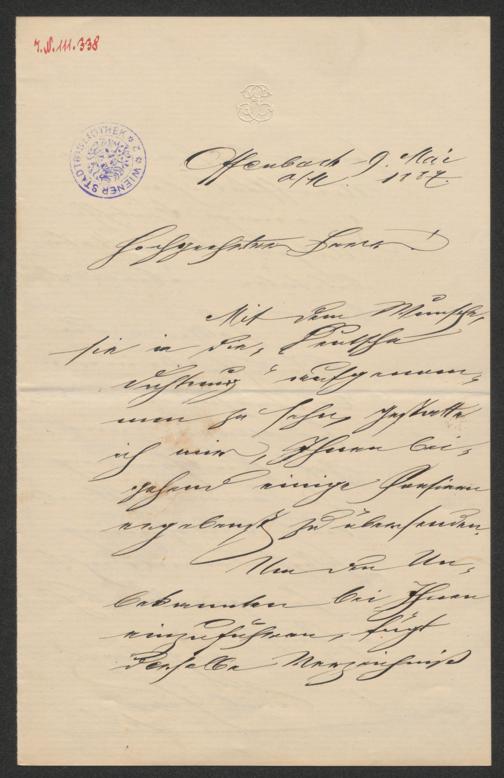 I.N. 111.338
WIENER STADTBIBLIOTHEK
Offenbach 9. Mai
a/M. 1887.
Hochgeehrter Herr!
Mit dem Wunsche,
sie in die „Deutsche
Dichtung“ aufgenom-
men zu sehn, gestatte
ich mir, Ihnen bei-
gehend einige Poesieen
ergebenst zu übersenden.
Um den Un-
bekannten bei Ihnen
einzuführen, fügt
derselbe Verzeichniß